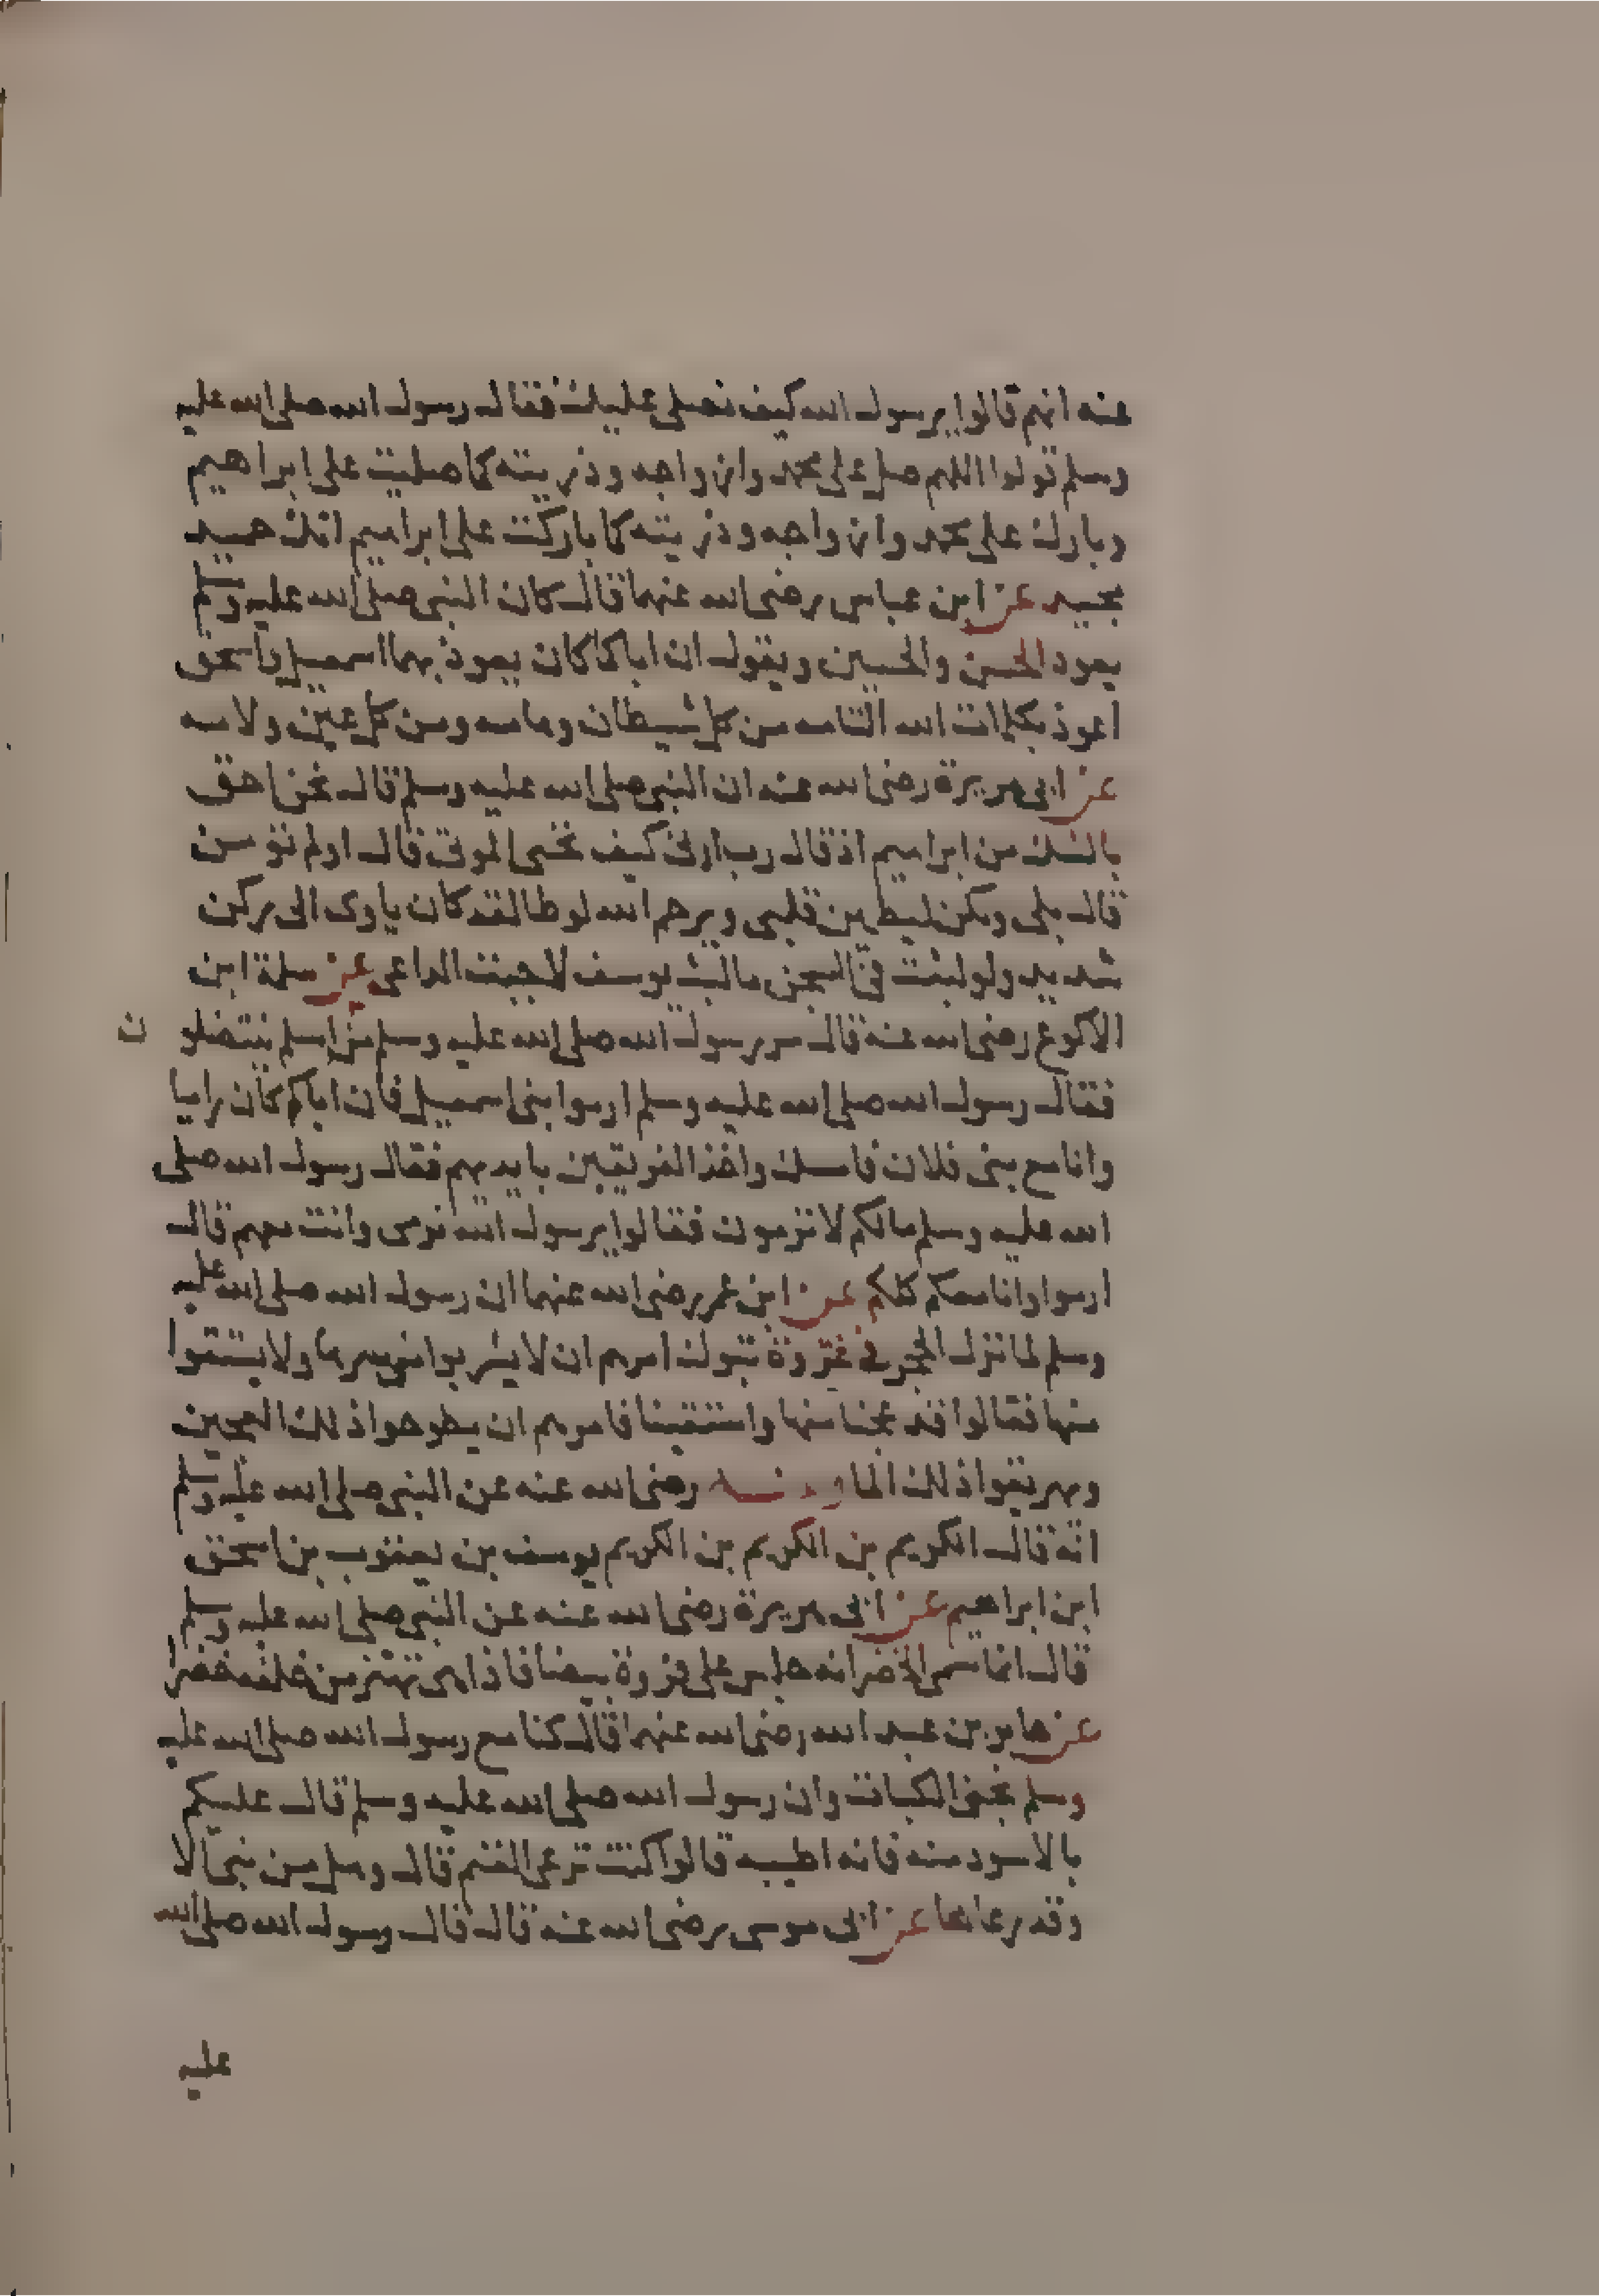 عنه انهم قالوا يرسول الله كيف نصلى عليك فقال رسول الله صلى الله عليه
وسلم قولوا اللهم صل على محمد وازواجه وذريته كما صليت على ابراهيم
وبارك على محمد وازواجه وذريته كما باركت على ابراهيم انك حميد
مجيد عن ابن عباس رضى الله عنهما قال كان النبى صلى الله عليه وسلم
يعوذ الحسن والحسين ويقول ان اباكما كان يعوذ بهما اسمعيل واسحق
اعوذ بكلمات الله التامه من كل شيطان وهامه ومن كل عين ولامه
عن ابى هريرة رضى الله عنه ان النبى صلى الله عليه وسلم قال نحن احق
بالشك من ابراهيم اذ قال رب ارنى كيف تحيى الموتى قال اولم تؤمن
قال بلى ولكن ليطمين قلبى ويرحم الله لوطا لقد كان ياوى الى ركن
شديد ولو لبثت فى السجن ما لبث يوسف لاجبت الداعى عن سلمة ابن
الاكوع رضى الله عنه قال مر رسول الله صلى الله عليه وسلم من اسلم ينتضلو ن
فقال رسول الله صلى الله عليه وسلم ارموا بنى اسمعيل فان اباكم كان راميا
وانا مع بنى فلان فامسك واخذ الفريقين بايديهم فقال رسول الله صلى
الله عليه وسلم مالكم لا ترمون فقالوا يرسول الله نرمى وانت معهم قال
ارموا وانا معكم كلكم عن ابن عمر رضى الله عنهما ان رسول الله صلى الله عليه
وسلم لما نزل الحجر فى غزوة تبوك امرهم ان لا يشربوا من بيرها ولا يستقوا
منها فقالوا قد عجنا منها واستقينا فامرهم ان يطرحوا ذلك العجين
ويهريقوا ذلك الما وعنه رضى الله عنه عن النبى صلى الله عليه وسلم
انه قال الكريم بن الكريم بن الكريم يوسف بن يعقوب بن اسحق
ابن ابراهيم عن ابى هريرة رضى الله عنه عن النبى صلى الله عليه وسلم
قال انما سمى الخضر انه جلس على فروة بيضا فاذا هى تهتز من خلفه خضرا
عن جابر بن عبد الله رضى الله عنهما قال كنا مع رسول الله صلى الله عليه
وسلم نجنى الكباث وان رسول الله صلى الله عليه وسلم قال عليكم
بالاسود منه فانه اطيبه قالوا اكنت ترعى الغنم قال وهل من نبى الا
وقد رعاها عن ابى موسى رضى الله عنه قال قال رسول الله صلى الله
عليه